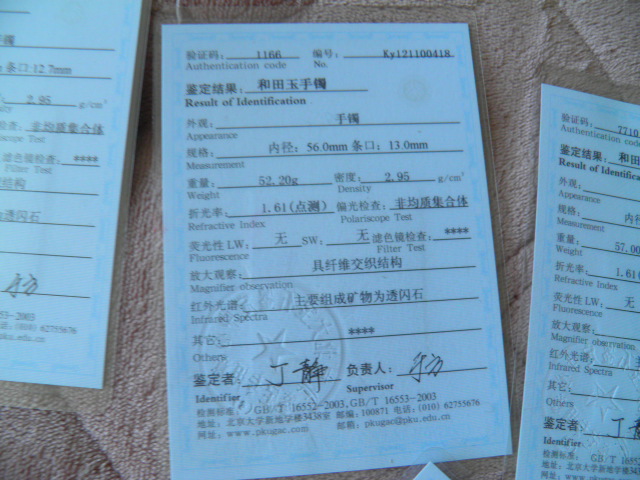 手镯
条口:12.7mm
2.95 g/cm³
检查: 非均质集合体
Test
滤色镜检查: ****
Filter Test
结构
透闪石
16553-2003
(010) 62755676
pku.edu.cn
验证码: 1166 编号: Ky121100418
Authentication code No.
鉴定结果: 和田玉手镯
Result of Identification
外观: 手镯
Appearance
规格: 内径: 56.0mm 条口: 13.0mm
Measurement
重量: 52.20g 密度: 2.95 g/cm³
Weight Density
折光率: 1.61(点测) 偏光检查: 非均质集合体
Refractive Index Polariscope Test
荧光性 LW: 无 SW: 无 滤色镜检查: ****
Fluorescence Filter Test
放大观察: 具纤维交织结构
Magnifier observation
红外光谱: 主要组成矿物为透闪石
Infrared Spectra
其它: ****
Others
鉴定者: 丁静 负责人:
Identifier Supervisor
检测标准: GB/T 16552-2003,GB/T 16553-2003
地址: 北京大学新地学楼3438室 邮编:100871 电话:(010) 62755676
网址: www.pkugac.com 邮箱: pkugac@pku.edu.cn
验证码: 7710
Authentication code
鉴定结果: 和田
Result of Identification
外观:
Appearance
规格: 内径
Measurement
重量: 57.00
Weight
折光率: 1.61
Refractive Index
荧光性 LW: 无
Fluorescence
放大观察:
Magnifier observation
红外光谱:
Infrared Spectra
其它:
Others
鉴定者: 丁
Identifier
检测标准: GB/T
地址: 北京大学新
网址: www.